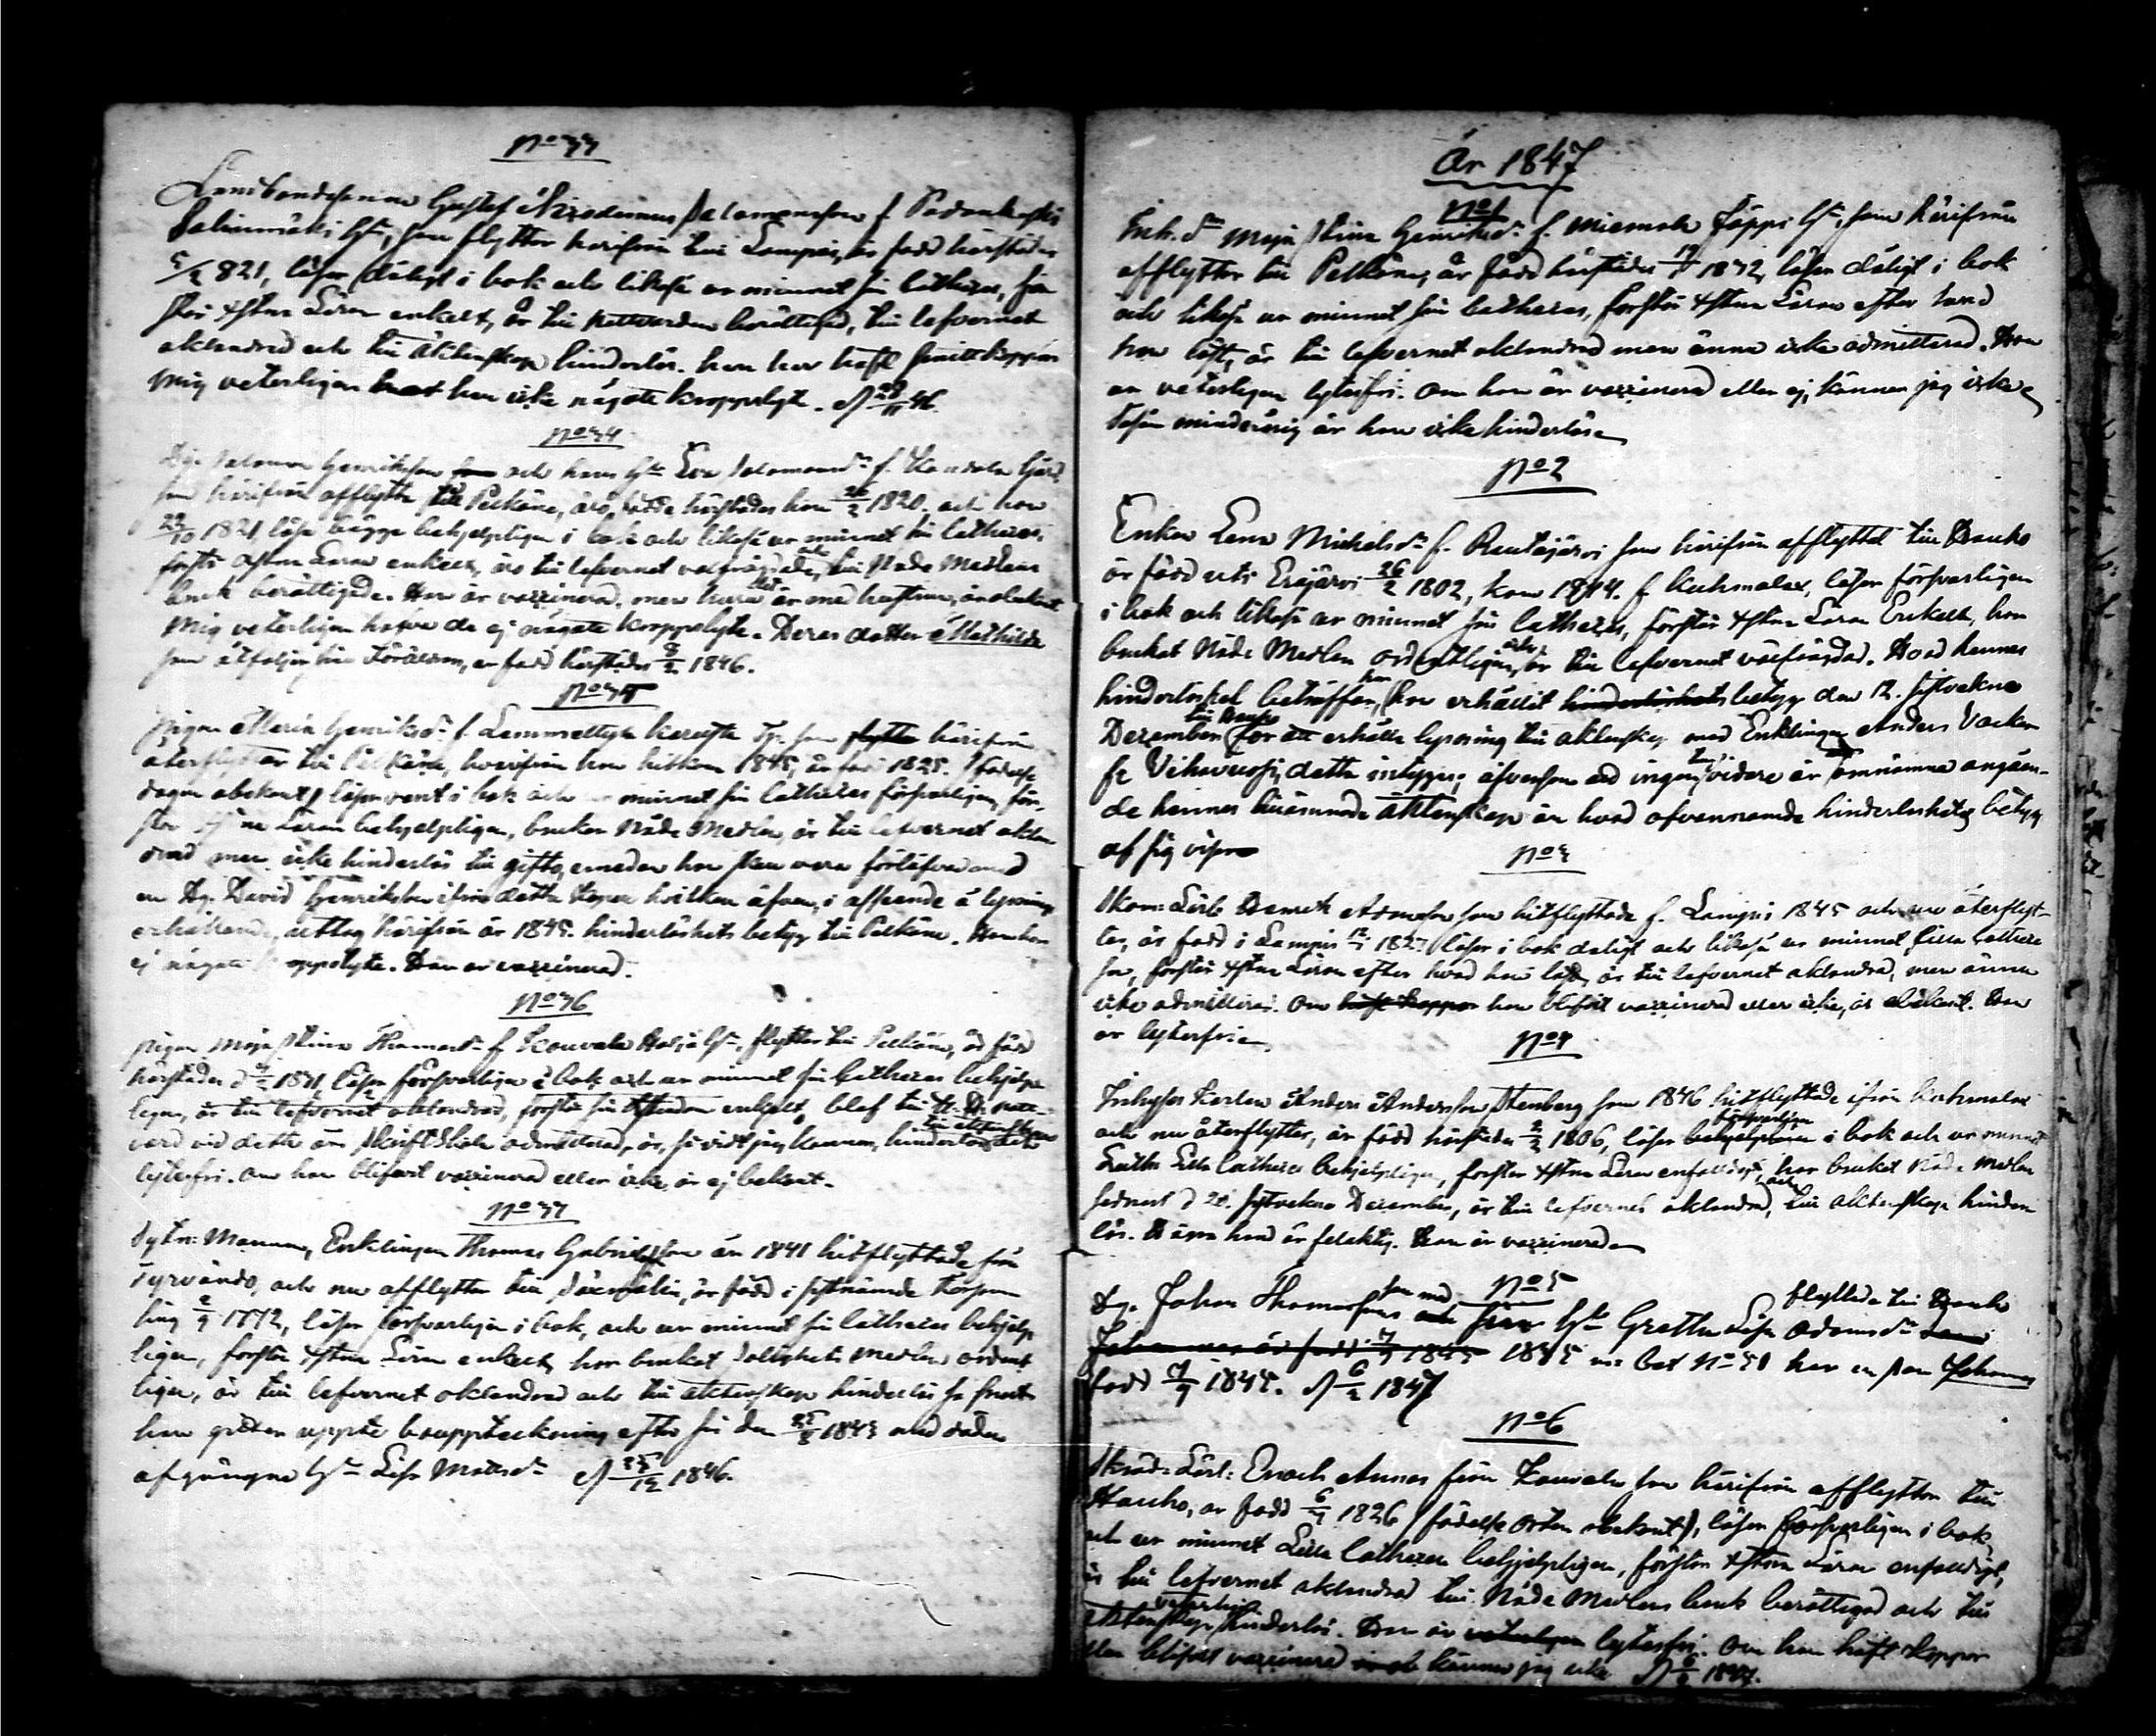 No 33
Landbondesonen Gustaf Nicodemus Salomonsson f. Padankoski
Salinmäki Gd, som flyttar härifrån till Lampis, är född härstädes
5/2 821, läser dåligt i bok och likaså ur minnet sin Catheces, för
står Xstna Läran enkelt, är till Nattvarden berättigad, till lefvernet
oklandrad och till äktenskap hinderlös. han har haft smittkoppor
mig veterligen har han icke någota kroppslyte. d 28/11 46.
No 34
Dg. Salomon Henriksson och hans Hu Eva Salomonsdr f.
som härifrån afflytta till Pelkäne, äro födde härstädes han 26/2 1820, och hon
29/10 1821, läsa bägge behjelpligen i bok och likaså ur minnet sin Catheces,
förstå Xstna Läran enkelt, äro till lefvernet välfrägdade och till Nåde Medlens
bruk berättigade. Han är vaccinerad. men huru det är med hustrun, är obekant
Mig veterligen hafva de ej någota kroppslyte. Deras dotter Mathilda
som åtföljer sina Föräldrar, är född härstädes 8/2 1846.
No 35
Pigan Maria Henriksdr f. Lemmettylä som härifrån
återflyttar till Pelkäne, hvarifrån hon hitkom 1845, är född 1825. (födelse
dagen obekant) läser rent i bok och ur minnet sin Catheces försvarligen, för
står Xstna Läran behjelpligen, brukar Nåde Medlen, är till lefvernet oklan
drad men icke hinderlös till gifte, emedan hon skall vara förlofvad med
en Dg. David Henriksson ifrån detta Kapell hvilken äfven, i afseende å lysnings
erhållande, uttog härifrån år 1845. hinderlöshets betyg till Pelkäne. Hon har
ej någota kroppslyte. Hon är vaccinerad.
No 36
Pigan Maja Stina Thomasdr f. Kouvala Gd, flyttar till Pelkäne, är född
härstädes d 1831, läser försvarligen i bok och ur minnet sin Catheces behjelp
ligen, är till lefvernet oklandrad, förstår sin Xstendom enkelt, blef till H. H. Natt-
vard vid detta års Skriftskola admitterad, är, så vidt jag känner, hinderlös till äktenskap
lytesfri. Om hon blifvit vaccinerad eller icke, är ej bekant.
No 37
Sytn: Mannen, Enklingen Thomas Gabrielsson som år 1841 hitflyttade från
Tyrvändö, och nu afflyttar till Sääksmäki, är född i sistnämnde Försam
ling 2/9 1772, läser försvarligen i bok, och ur minnet sin Catheces behjelp
ligen, förstår Xstna Läran enkelt, har brukat Salighets Medlen ordent
ligen, är till lefvernet oklandrad och till äktenskap hinderlös
han gitter uppte bouppteckning efter sin den 25/3 1843 med döden
afgångne Hu Lisa Mattsdr d 23/12 1846.
År 1847
No 1
Inh. dr Maja Stina Henriksdr f. Miemola Jäppi Gd, som härifrån
afflyttar till Pelkäne, är född härstädes 1832, läser dåligt i bok
och likaså ur minnet sin Catheces, förstår Xstna Läran efter hvad
hon läst, är till lefvernet oklandrad men ännu icke admitterad. Hon
är veterligen lytesfri. Om hon är vaccinerad eller ej, känner jag icke
Såsom minderårig är hon icke hinderlös
No 2
Enkan Lena Michelsdr f. Rautajärvi som härifrån afflyttat till Hauho
är född uti Eräjärvi 26/2 1802, kom 1844. f. Kuhmalax, läser försvarligen
i bok och likaså ur minnet sin Catheces, förstår Xstna Läran Enkelt, har
brukat Nåde Medlen ordentligen, och är till lefvernet välfrägdad. Hvad hennes
hinderlöshet beträffar, har hon erhållit hinderlöshets betyg den 12. sistvekne
December till Hauho för att erhålla lysning till äktenskap med Enklingen Anders
fr Vihavuosi, detta intygas; äfvensom ad ingen ting vidare är omnämna angåen-
de hennes tillämnade äktenskap än hvad ofvannämnde hinderlöshets betyg
af sig visar
No 3
Skom: Lärl: Henrik Adamsson som hitflyttade f. Lampis 1845 och nu återflyt-
tar, är född i Lampis 12/1 1827, läser i bok dåligt och likaså ur minnet Lilla Cathece
sen, förstår Xstna Läran efter hvad han läst, är till lefvernet oklandrad, men ännu
icke admitterad. Om haft koppor han blifvit vaccinerad eller icke, är obekant. Han
är lytesfri
No 4
Inhyses Karlen Anders Andersson Stenberg som 1846 hitflyttade ifrån Kuhmalax
och nu återflyttar, är född härstädes 2/2 1806, läser behjelpligen försvarligen i bok och ur minnet
Luthri Lilla Catheces behjelpligen, förstår Xstna Läran enfalldigt, har brukat Nåde Medlen
sednast d 20. sistvekne December, är till lefvernet oklandrad, och till äktenskap hinder
lös. Högra hand är felaktig. Han är vaccinerad
No 5
Dg. Johan Thomasson som med och sin Hu Gretha Lisa Adamsdr flyttade till Hauho
Johannes är född 7/9 1845 1845 m: bet No 51 har en son Johannes
född 7/9 1845. d 6/2 1847
No 6
Skräd: Lärl: Enoch Annas från Kouvala som härifrån afflyttar till
Hauho, är född 6/4 1826 (födelse orten obekant), läser försvarligen i bok,
och ur minnet Lilla Cathecesen behjelpligen, förstår Xstna Läran enfalldigt,
är till lefvernet oklandrad till Nåde Medlens bruk berättigad och till
äktenskap veterligen hinderlös. Han är veterligen lytesfri. Om han haft koppor
eller blifvit vaccinerad känner jag icke d 6/2 1847.